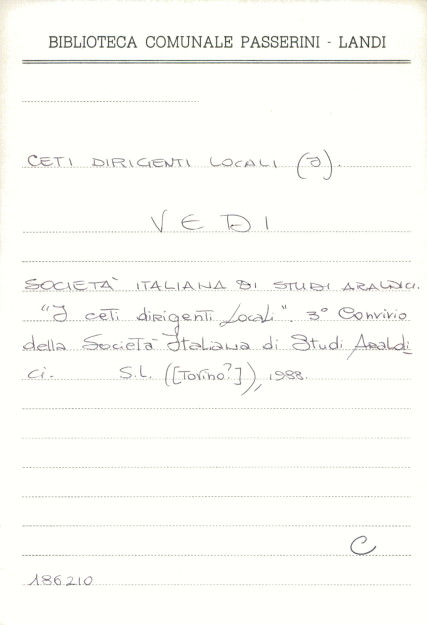 BIBLIOTECA COMUNALE PASSERINI - LANDI
CETI DIRIGENTI LOCALI (I).
VEDI
SOCIETÀ ITALIANA DI STUDI ARALDICI.
"I ceti dirigenti locali". 3° Convivio
della Società Italiana di Studi Araldi
ci. S.l. ([Torino?]), 1988.
C
186210